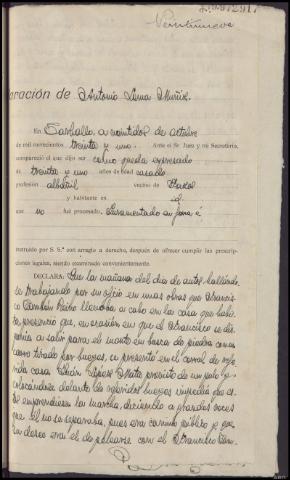 Veintinueve
aración de Antonio Lema Muñiz.
En Carballo, a veintidos de octubre
de mil novecientos treinta y uno. Ante el Sr. Juez y mi Secretario,
compareció el que dijo ser como queda expresado
de treinta y uno años de edad casado
profesión albañil vecino de
y habitante en id.
que no fué procesado, juramentado en forma é
instruído por S. Sª con arreglo a derecho, después de ofrecer cumplir las prescrip-
ciones legales, siendo examinado convenientemente.
DECLARA: Que la mañana del dia de autos hallándo-
se trabajando por su oficio en unas obras que Francis-
co llevaba a cabo en la casa que habi-
ta, presenció que, en ocasión en que el Francisco se dis-
ponía a salir para el monte en busca de piedra con un
carro tirado por bueyes, se presentó en el corral de refe-
rida casa provisto de un palo y
colocándose delante de referidos bueyes impedía que es-
tos emprendiesen la marcha, diciendo a grandes voces
que él no se separaba, pues era camino público y que
su deseo era el de pelearse con el Francisco